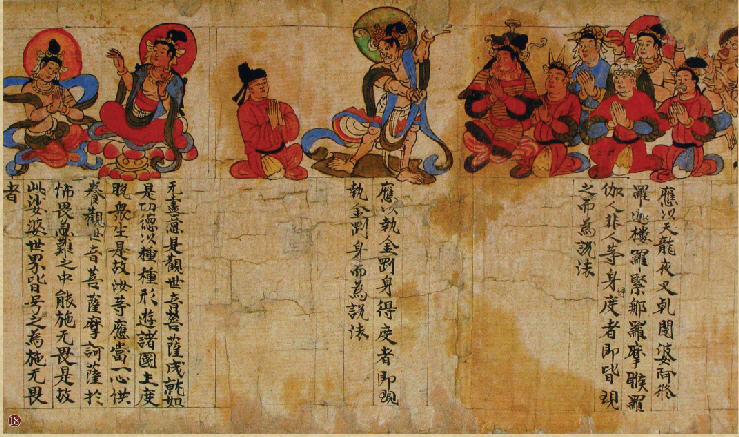 應以天龍夜叉乹闥婆阿脩
羅迦樓羅緊那羅摩睺羅
伽人非人等身得度者即皆現
之而為說法
應以執金剛身得度者即現
執金剛身而為說法
无盡意是觀世音菩薩成就如
是功德以種種形遊諸國土度
脫衆生是故汝等應當一心供
養觀世音菩薩摩訶薩於
怖畏急難之中能施无畏是故
此娑婆世界皆号之為施无畏
者